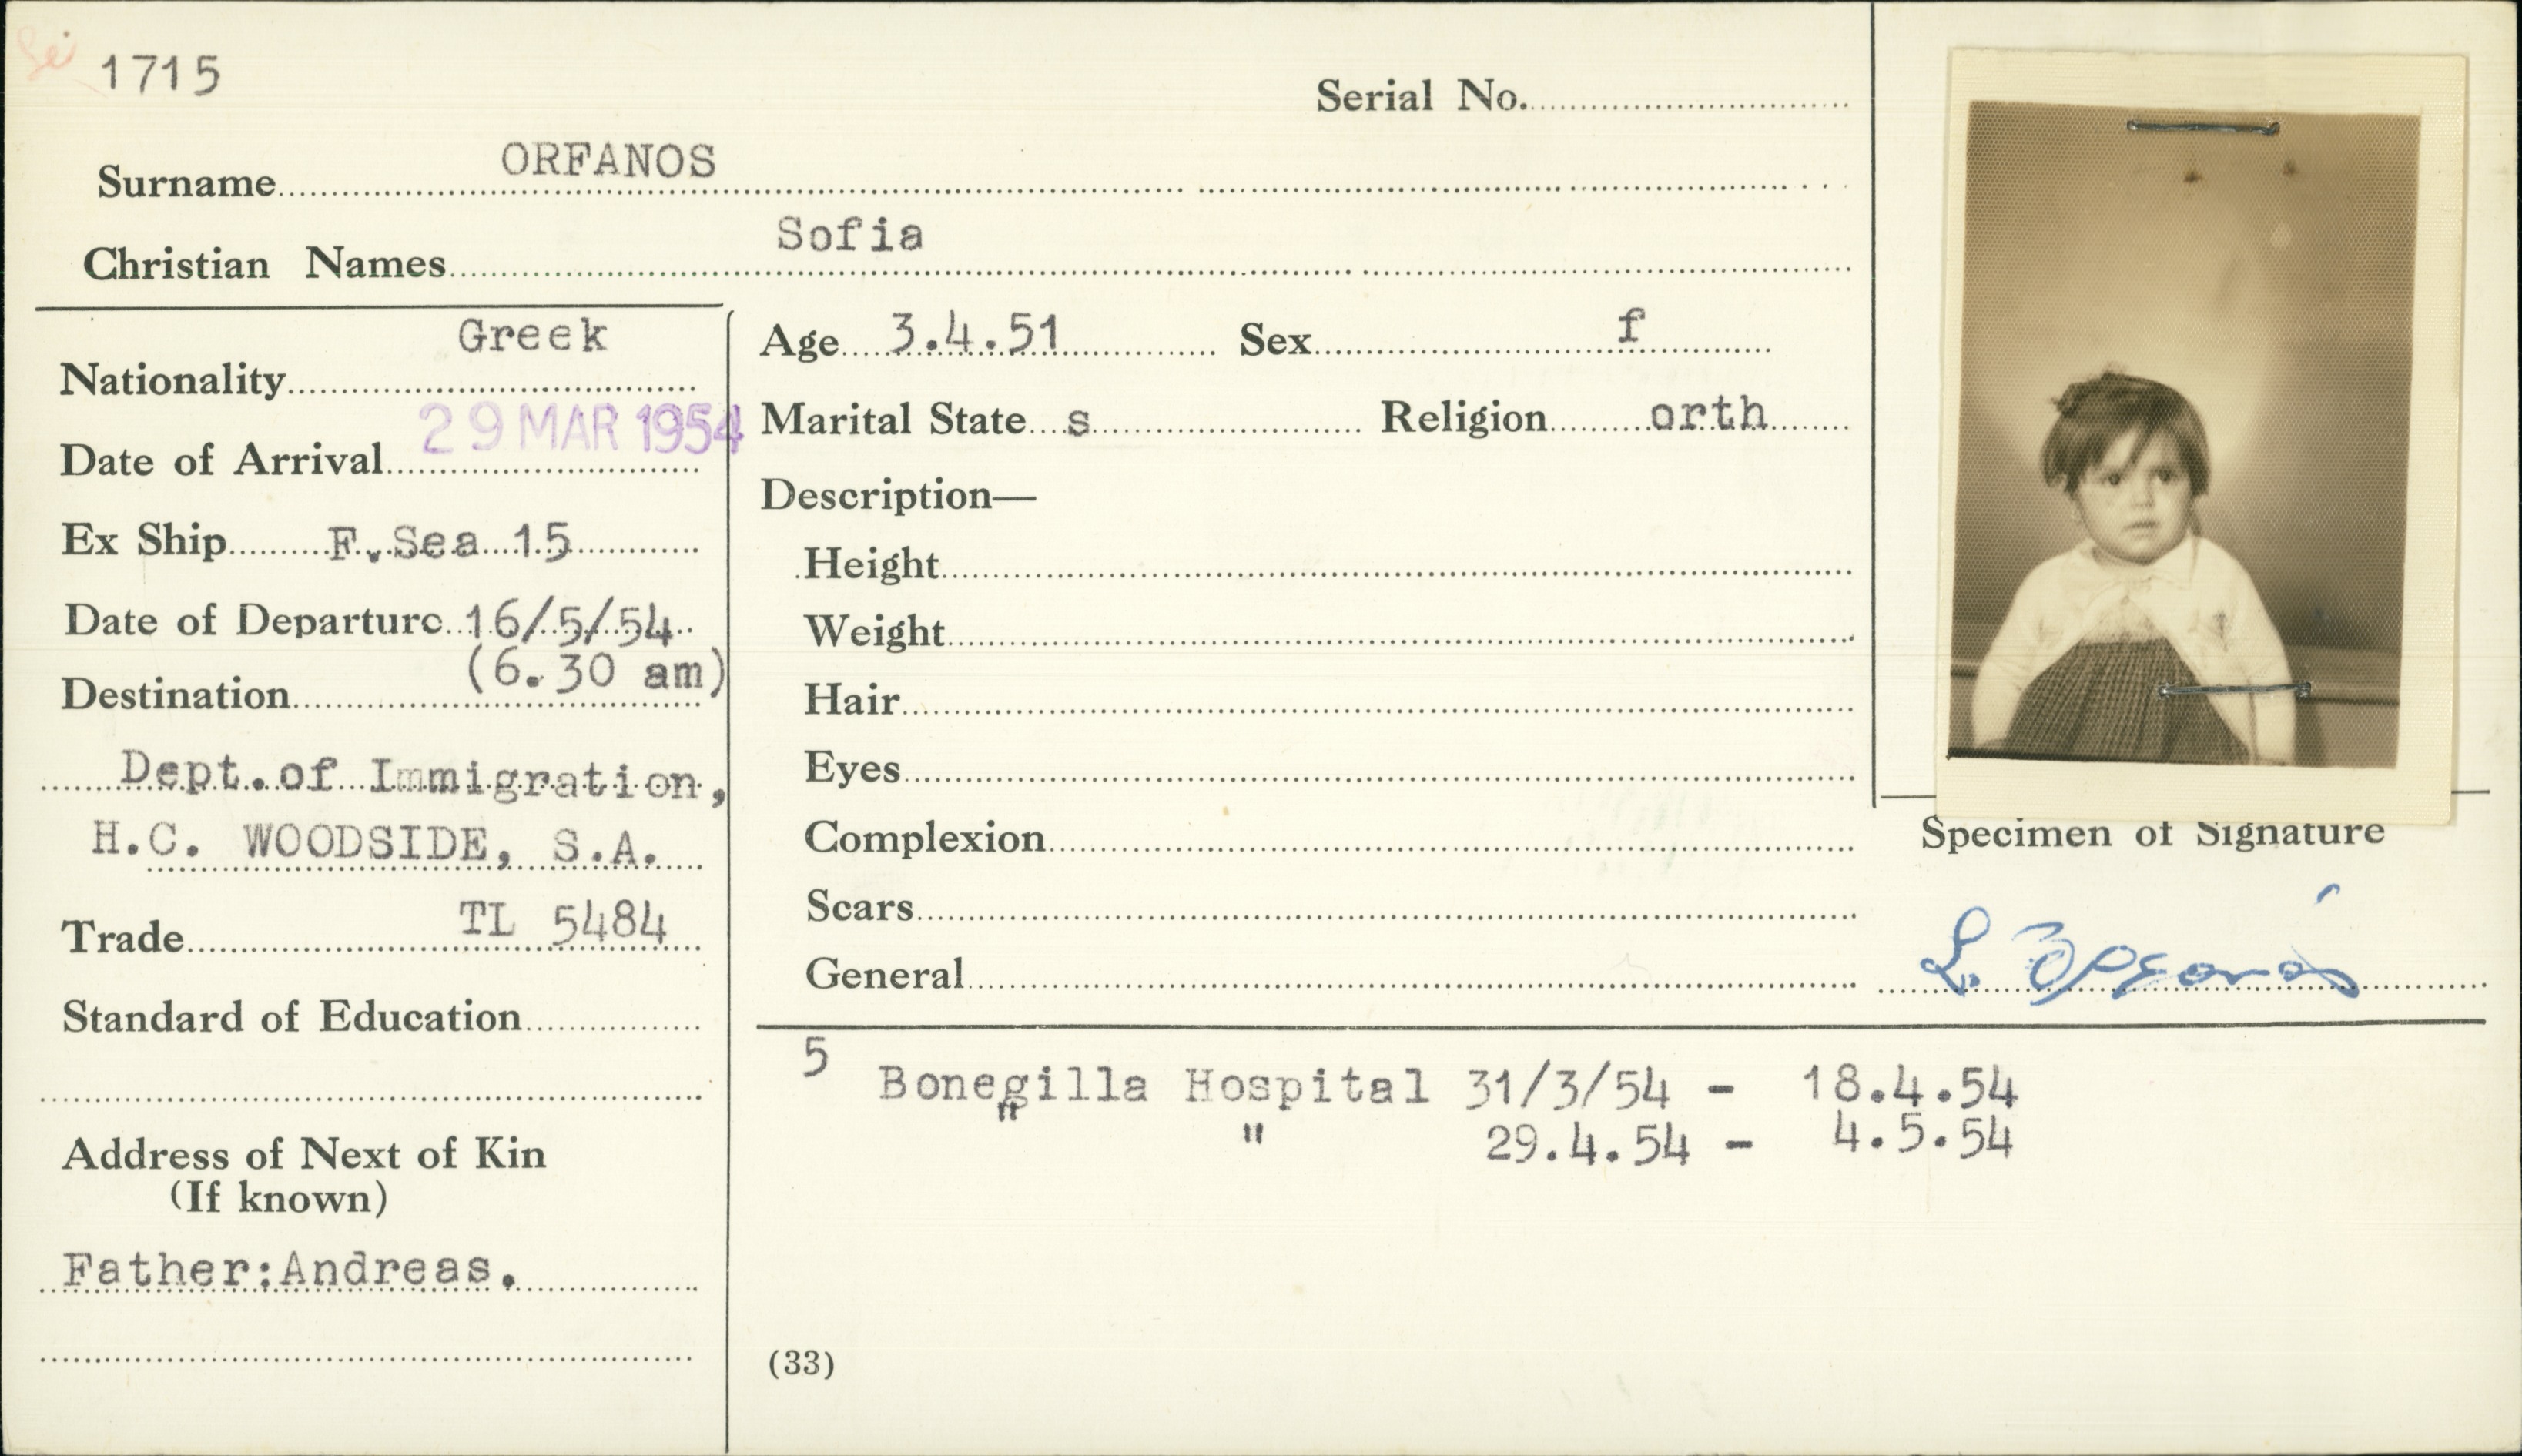 1715
Serial No.
Surname ORFANOS
Christian Names Sofia
Nationality Greek
Date of Arrival 29 MAR 1954
Ex Ship F.Sea 15
Date of Departure 16/5/54
(6.30 am)
Destination
Dept.of Immigration,
H.C. WOODSIDE, S.A.
Trade TL 5484
Standard of Education
Address of Next of Kin
(If known)
Father:Andreas.
Age 3.4.51 Sex f
Marital State s Religion orth
Description—
Height
Weight
Hair
Eyes
Complexion
Scars
General
Specimen of Signature
5
Bonegilla Hospital 31/3/54 - 18.4.54
" " 29.4.54 - 4.5.54
(33)